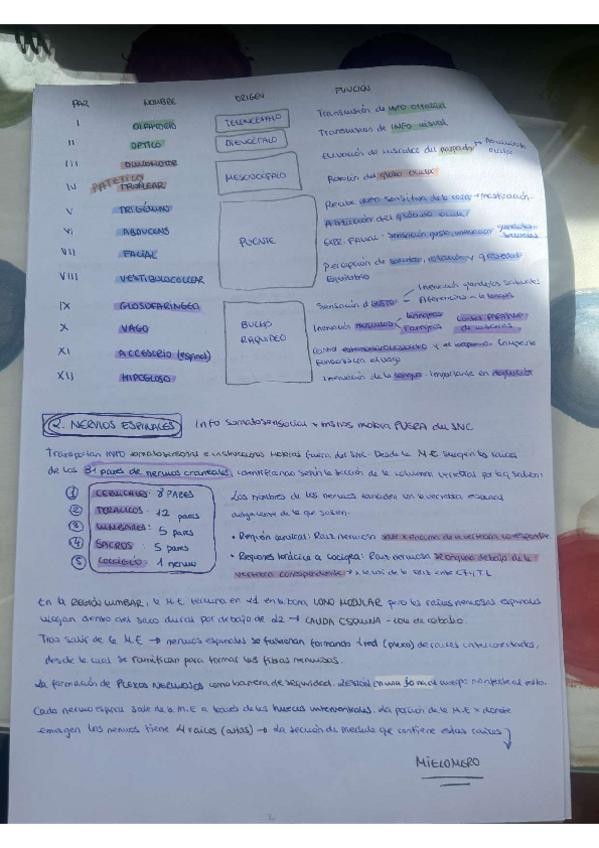 PAR NOMBRE ORIGEN FUNCION
I OLFATORIO TELENCÉFALO Transmisión de INFO olfativa
II OPTICO DIENCÉFALO Transmision de INFO visual
III OCULOMOTOR MESENCÉFALO Elevación de músculos del parpado
IV PATETICO TROCLEAR Rotación del globo ocular
V TRIGÉMINO PUENTE Recibe info sensitiva de la cara + masticación.
VI ABDUCENS Abducción del globo ocular
VII FACIAL Expr. Facial - sensación gusto, inervacion glandulas salivales
VIII VESTIBULOCOCLEAR Percepción de sonidos, rotación y gravedad
Equilibrio
IX GLOSOFARÍNGEO BULBO RAQUIDEO Sensación de gusto Inervación glandulas salivales
Aferencias a la lengua
X VAGO Inervación musculos laringeos faringeos
XI ACCESORIO (espinal) Control
XII HIPOGLOSO Inervación de la lengua. Importante en deglución
2. NERVIOS ESPINALES Info somatosensorial + motora FUERA del SNC
Transportan INFO somatosensorial e instrucciones motoras fuera del SNC. Desde la M.E surgen las raices
de los 31 pares de nervios craneales, identificandose según la sección de la columna vertebral por la q salen:
① CERVICALES: 8 PARES
② TORACICOS: 12 pares
③ LUMBARES: 5 pares
④ SACROS: 5 pares
⑤ COCCÍGEO: 1 nervio
Los nombres de los nervios coinciden con la vertebra espinal
adyacente de la que salen.
• Región cervical: Raiz nerviosa sale x encima de la vertebra correspondiente
• Regiones torácica a coccígea: Raiz nerviosa se origina debajo de la
vertebra correspondiente
En la REGIÓN LUMBAR, la M.E termina en CONO MEDULAR pero las raices nerviosas espinales
viajan dentro del saco dural por debajo de L2 → CAUDA EQUINA - cola de caballo.
Tras salir de la M.E → nervios espinales se fusionan formando 1 red (plexo) de raices interconectadas,
desde la cual se ramifican para formar las fibras nerviosas.
La formación de PLEXOS NERVIOSOS como barrera de seguridad. LESIÓN en una zona del cuerpo no afecte al resto.
Cada nervio espinal sale de la M.E a través de los huecos intervertebrales. La porción de la M.E x donde
emergen los nervios tiene 4 raices (astas) → La sección de medula que contiene estas raices
MIELOMERO
2